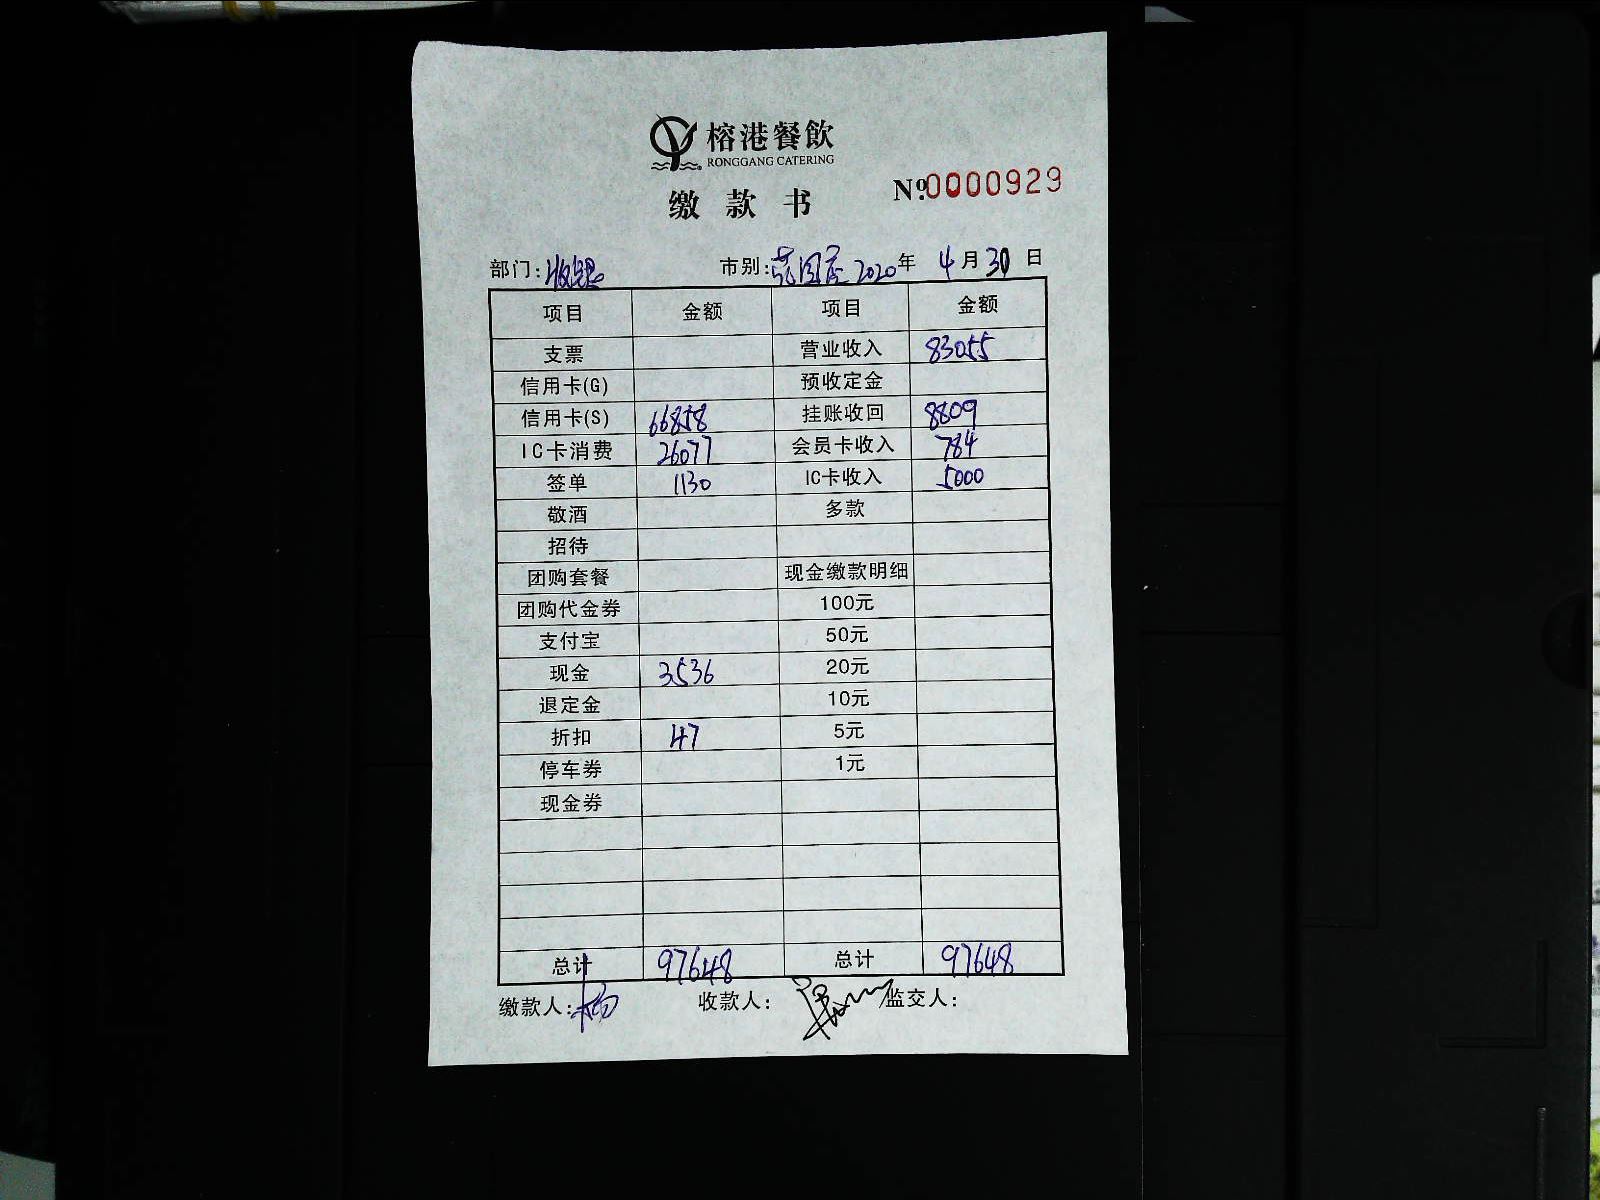 榕港餐飲
RONGGANG CATERING
缴款书 №0000929
部门:收银 市别: 2020年4月30日
项目 金额 项目 金额
支票 营业收入 83055
信用卡(G) 预收定金
信用卡(S) 66858 挂账收回 8809
IC卡消费 26077 会员卡收入 784
签单 1130 IC卡收入 5000
敬酒 多款
招待
团购套餐 现金缴款明细
团购代金券 100元
支付宝 50元
现金 3536 20元
退定金 10元
折扣 47 5元
停车券 1元
现金券
总计 97648 总计 97648
缴款人: 收款人: 监交人: